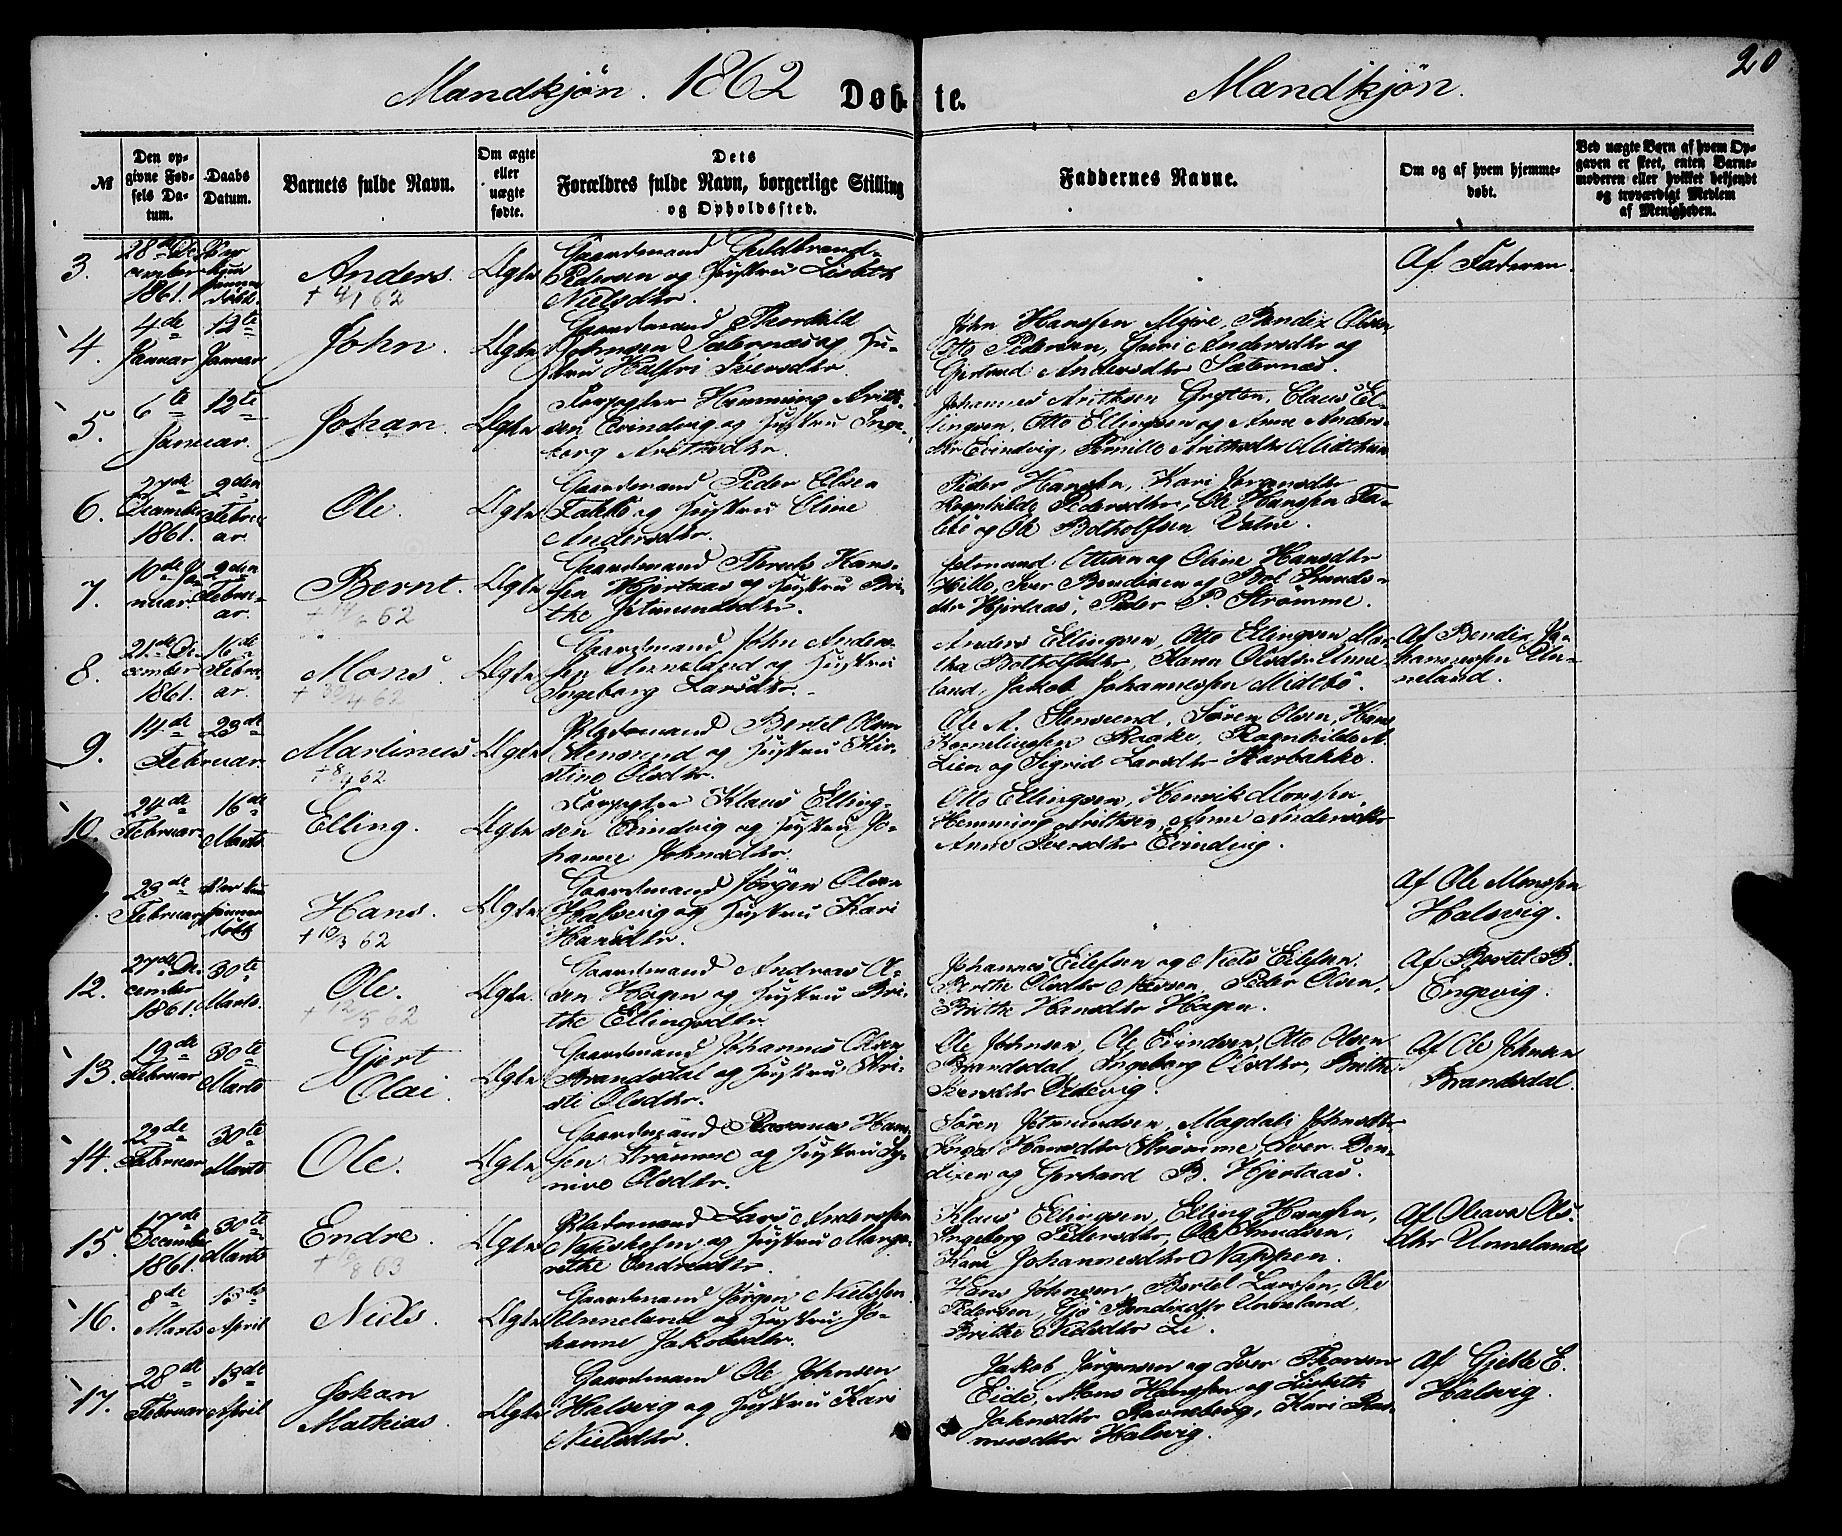 20
Mandkjøn. 1862 Døb- te. Mandkjøn.
№
Den op-
givne Fød-
sels Da-
tum.
Daabs
Datum.
Barnets fulde Navn.
Om ægte
eller
uægte
fødte.
Dets
Forældres fulde Navn, borgerlige Stilling
og Opholdssted.
Faddernes Navne.
Om og af hvem hjemme-
døbt.
Ved uægte Børn af hvem Op-
gaven er skeet, enten Barne-
moderen eller hvilket bekjendt
og troværdigt Medlem
af Menigheden.
3.
28de De-
cember
1861.
Anders.
+ 4/1 62
Ægte
Gaardmand Guldbrand
Pedersen og Hustru Lisbet
Nielsdtr.
Af Faderen.
4.
4de
Januar
12te
Januar
John.
Ægte
Gaardmand Thorkild
Johnsen Sæternæs og Hu-
stru Iversdtr.
John Hanssen Myre, Bendix Olsen
Otto Pedersen, Guri Andersdtr og
Gertrud Andersdtr Sæternæs.
5.
6te
Januar.
12te
Johan.
Ægte
Forpagter Hemming Arith-
sen Evindvig og Hustru Inge-
borg
Johannes Arithsen Grytten, Claus El-
lingsen, Otto Ellingsen og Anne Anders-
dtr Evindvig, Pernille
6.
27de
December
1861.
2den
Febru-
ar.
Ole.
Ægte
Gaardmand Peder Olsen
og Hustru Oline
Andersdtr.
Peder Hanssen, Kari
Ragnhilde Pedersdtr, Ole Hanssen
og Ole Botholfsen Vatne.
7.
10de Ja-
nuar.
2den
Febru-
ar.
Bernt.
62
Ægte
Gaardmand Hans-
sen Hjertaas og Hustru Bri-
the Jetmundsdtr.
Jetmund, Ottine og Oline Hansdtr
Hille, Iver Bendixen og
dtr Hjertaas, Peder P. Strømme.
8.
21de De-
cember
1861.
16de
Febru-
ar.
Mons.
+ 30/4 62
Ægte
Gaardmand John Anders-
sen Unneland og Hustru
Ingeborg Larsdtr.
Anders Ellingsen, Otto Ellingsen, Mar-
tha Botholfsdtr, Karen Olsdtr Unne-
land, Jakob Johannessen Midtbø.
Af Bendix Jo-
hannessen Un-
neland.
9.
14de
Februar.
23de
Martinus
+ 8/4 62
Ægte
Pladsmand Bertel Olsen
Stensund og Hustru Kir-
stine Olsdtr.
Ole A. Stensund, Søren Olsen, Hans
Kornelinssen Raake, Ragnhilde A.
Lien og Sigrid Larsdtr Harbakke.
10.
24de
Februar
16de
Marts
Elling.
Ægte
Forpagter Klaus Elling-
sen Evindvig og Hustru Jo-
hanne Johnsdtr.
Otto Ellingsen, Henrik Monsen,
Hemming Arithsen, Anne Andersdtr
Anne Iversdtr Evindvig.
23de
Februar
Hans.
+ 10/3 62
Ægte
Gaardmand Jörgen Olsen
Halsvig og Hustru Kari
Hansdtr.
Af Ole Monssen
Halsvig.
12.
27de De-
cember
1861.
30te
Marts.
Ole.
+ 12/5 62
Ægte
Gaardmand Andreas Ol-
sen Hagen og Hustru Bri-
the Ellingsdtr.
Johannes Eilefsen og Niels Eilefsen,
Berthe Olsdtr Peder Olsen,
Brithe Hansdtr Hagen.
Af Bertel B.
Engevig.
13.
19de
Februar
30te
Marts
Gjert
Olai.
Ægte
Gaardmand Johannes Olsen
Brandsdal og Hustru Kri-
sti Olsdtr.
Ole Johnsen, Ole Evindsen, Otto Olsen
Brandsdal, Ingeborg Olsdtr, Brithe
Iversdtr
Af Ole Johnsen
Brandsdal.
14.
22de
Februar
30te
Marts
Ole.
Ægte
Gaardmand Rasmus Hans-
sen Strømme og Hustru Sy-
neve Olsdtr.
Søren Jetmundsen, Magdali Johnsdtr
Hansdtr Strømme, Iver Ben-
dixen og Gerhard B. Hjertaas.
15.
17de
December
1861.
30te
Marts
Endre.
+ 10/8 63
Ægte
Pladsmand Lars Anderssen
og Hustru Marga-
rethe Endresdtr.
Klaus Ellingsen, Elling Hanssen,
Ingeborg Pedersdtr, Ole Knudsen,
Kari Johannesdtr Nappen.
Af Oleava Ols-
dtr Unneland.
16.
8de
Marts
13de
April
Niels.
Ægte
Gaardmand Jörgen Nielssen
Unneland og Hustru Jo-
hanne Jakobsdtr.
Hans Johnsen, Bertel Larssen, Ole
Pedersen, Gjø Bendixdtr Unneland,
Brithe Nielsdtr Li.
17.
28de
Februar
13de
April
Johan
Mathias.
Ægte
Gaardmand Ole Johnsen
Halsvig og Hustru Kari
Nielsdtr.
Jakob Jörgensen og Iver Thorsen
Eide, Hans Hanssen og Lisbeth
Johnsdtr Ravneberg, Kari Ras-
musdtr Halsvig.
Af Gjelte E.
Halsvig.